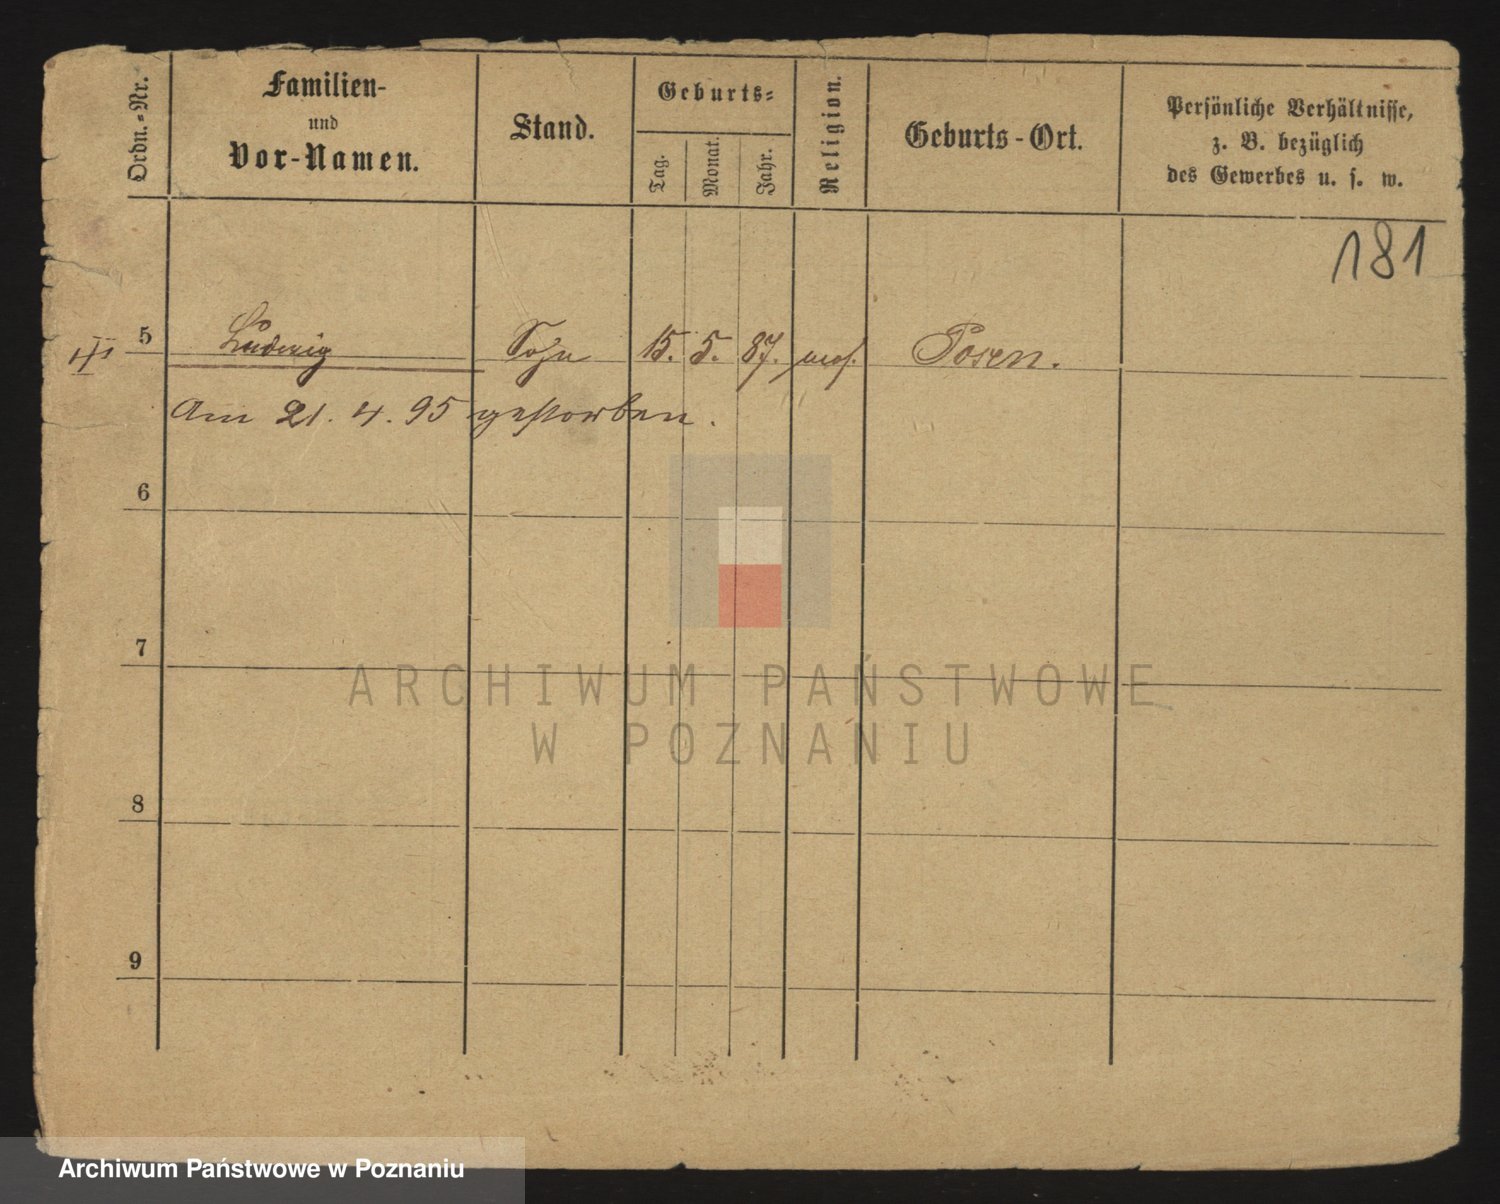 Ordn.-Nr.
Familien-
und
Vor-Namen.
Stand.
Geburts-
Tag.
Monat.
Jahr.
Religion.
Geburts-Ort.
Persönliche Verhältnisse,
z. B. bezüglich
des Gewerbes u. s. w.
181
5 Ludwig Sohn 15. 5. 87. mos. Posen.
Am 21. 4. 95 gestorben.
6
7
ARCHIWUM PAŃSTWOWE
W POZNANIU
8
9
Archiwum Państwowe w Poznaniu